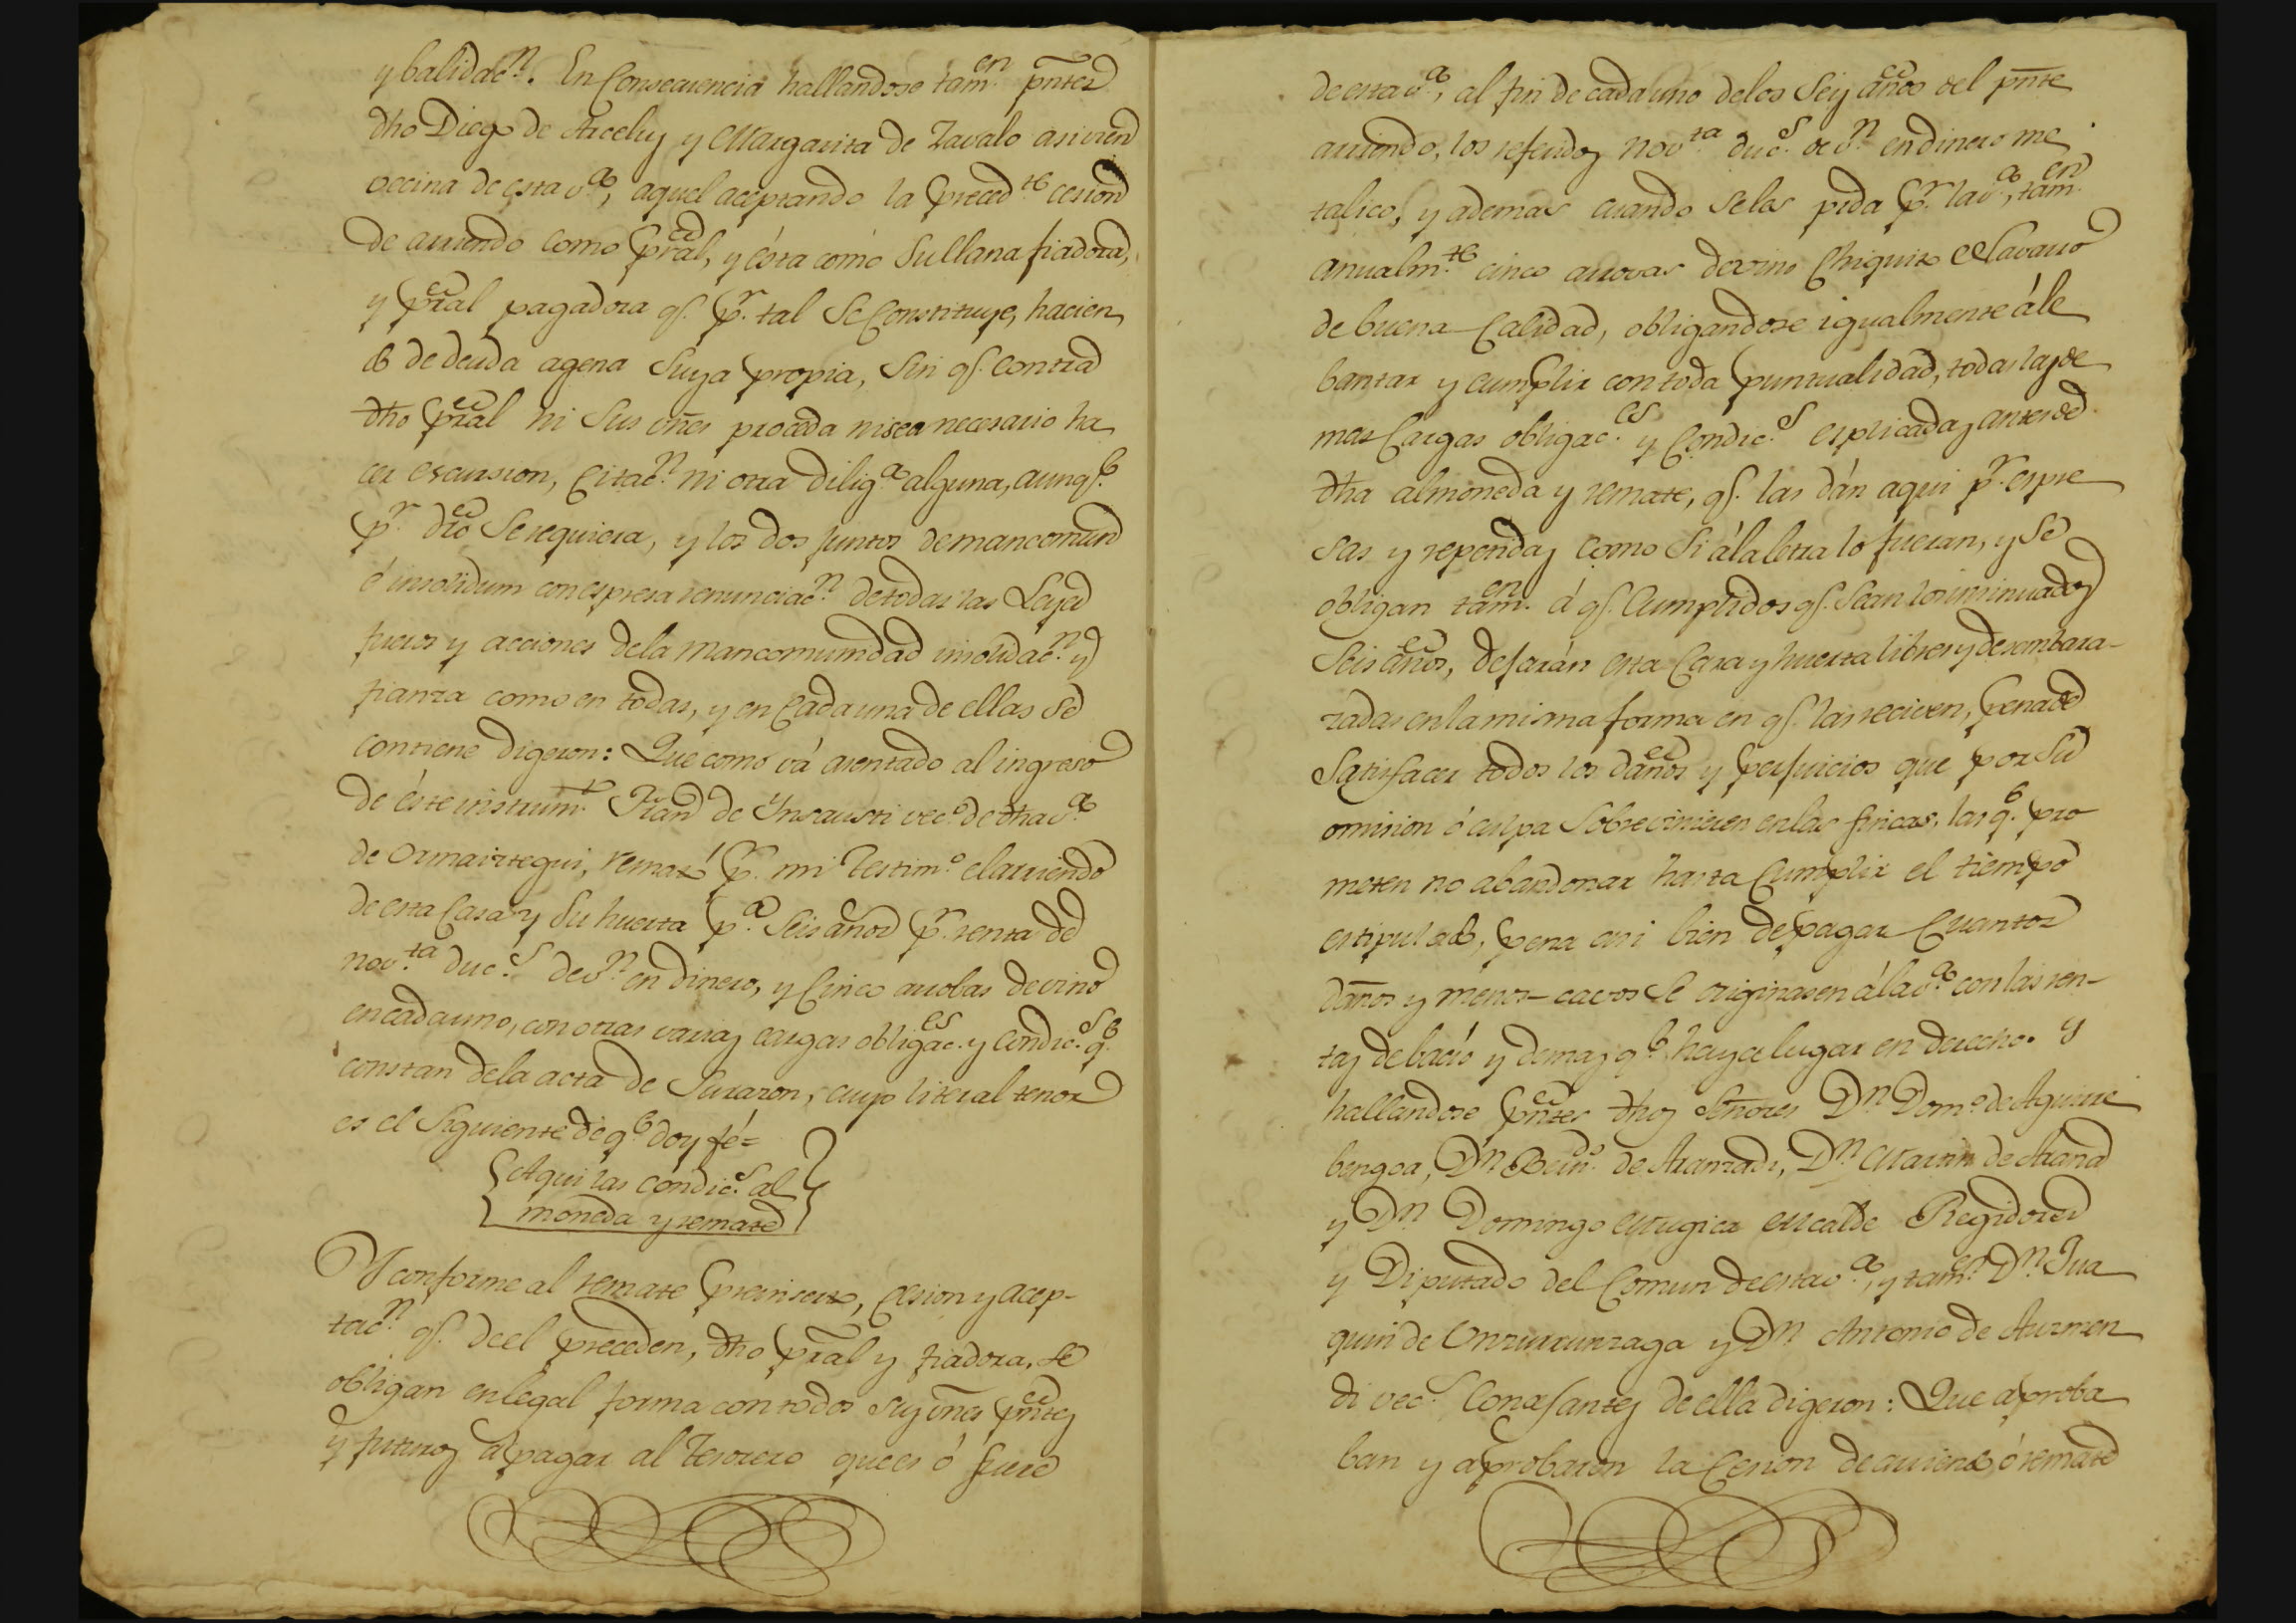 y balidac.n. En Consecuencia hallandose tam.en pntes
dho Diego de Arcelus y Margarita de Zavalo asivien
vecina de esta v.a, aquel aceptando la preced.te cesion
de arriendo como pral, y ésta como su llana fiadora,
y pral pagadora q.e p.r tal se Constituye, hacien
do de deuda agena suya propia, sin q.e contra
dho pral ni sus vnes proceda ni sea necesario ha
cer escursion, citac.n ni otra dilig.a alguna, aunq.e
p.r dro se requiera, y los dos juntos de mancomun
é insolidum con espresa renunciac.n de todas las Leyes
fueros y acciones de la mancomunidad insolidac.n y
fianza como en todas, y en cada una de ellas se
contiene digeron: Que como vá asentado al ingreso
de éste instrum.t Fran de Ynsausti vec.o de dha v.a
de Ormaiztegui, remató p.r mi Testim.o el arriendo
de esta Casa y su huerta p.a seis años p.r renta de
nov.ta duc.s de v.n en dinero, y cinco arrobas de vino
en cada uno, con otras varias cargas obligac.es y condic.s q.e
constan de la acta de su razon, cuyo literal tenor
es el siguiente de q.e doy fé=
Aqui las condic.s al
moneda y remate
Y conforme al remate preinserto, cesion y acep-
tac.n q.e de el preceden, dho pral y fiadora, se
obligan en legal forma con todos sus vnes pntes
y futuros a pagar al Tesorero que es ó fuere
de esta v.a, al fin de cada uno de los seis años del pnte
arriendo, los referidos nov.ta duc.s de v.n en dinero me
talico, y ademas cuando se las pida p.r la v.a, tam.en
anualm.te cinco arrovas de vino Chiquito Navarro
de buena Calidad, obligandose igualmente á le
bantar y cumplir con toda puntualidad, todas las de
mas Cargas obligac.es y Condic.s esplicadas antes de
dha almoneda y remate, q.e las dán aqui p.r espre
sas y repetidas como si á la letra lo fueran, y se
obligan tam.en á q.e Cumplidos q.e sean los insinuados
seis años, dejarán esta Casa y huerta libres y desembara-
zadas en la misma forma en q.e las reciven, pena de
satisfacer todos los daños y perjuicios que por su
omision ó culpa sobrevinieren en las fincas, las q.e pro
meten no abandonar hasta cumplir el tiempo
estipulado, pena asi bien de pagar cuantos
daños y menos-cavos se originasen á la v.a con las ren-
tas de bacío y demas q.e haya lugar en derecho. Y
hallandose pntes dhos Señores D.n Dom.o de Aguirre
bengoa, D.n Bern.o de Aranzadi, D.n Martin de Arana
y D.n Domingo Mugica Alcalde Regidores
y Diputado del Comun de esta v.a, y tam.en D.n Jua
quin de Unzurrunzaga y D.n Antonio de Aurmen
di vec.s Concejantes de ella digeron: Que aproba
ban y aprobaron la Cesion de arriendo ó remate